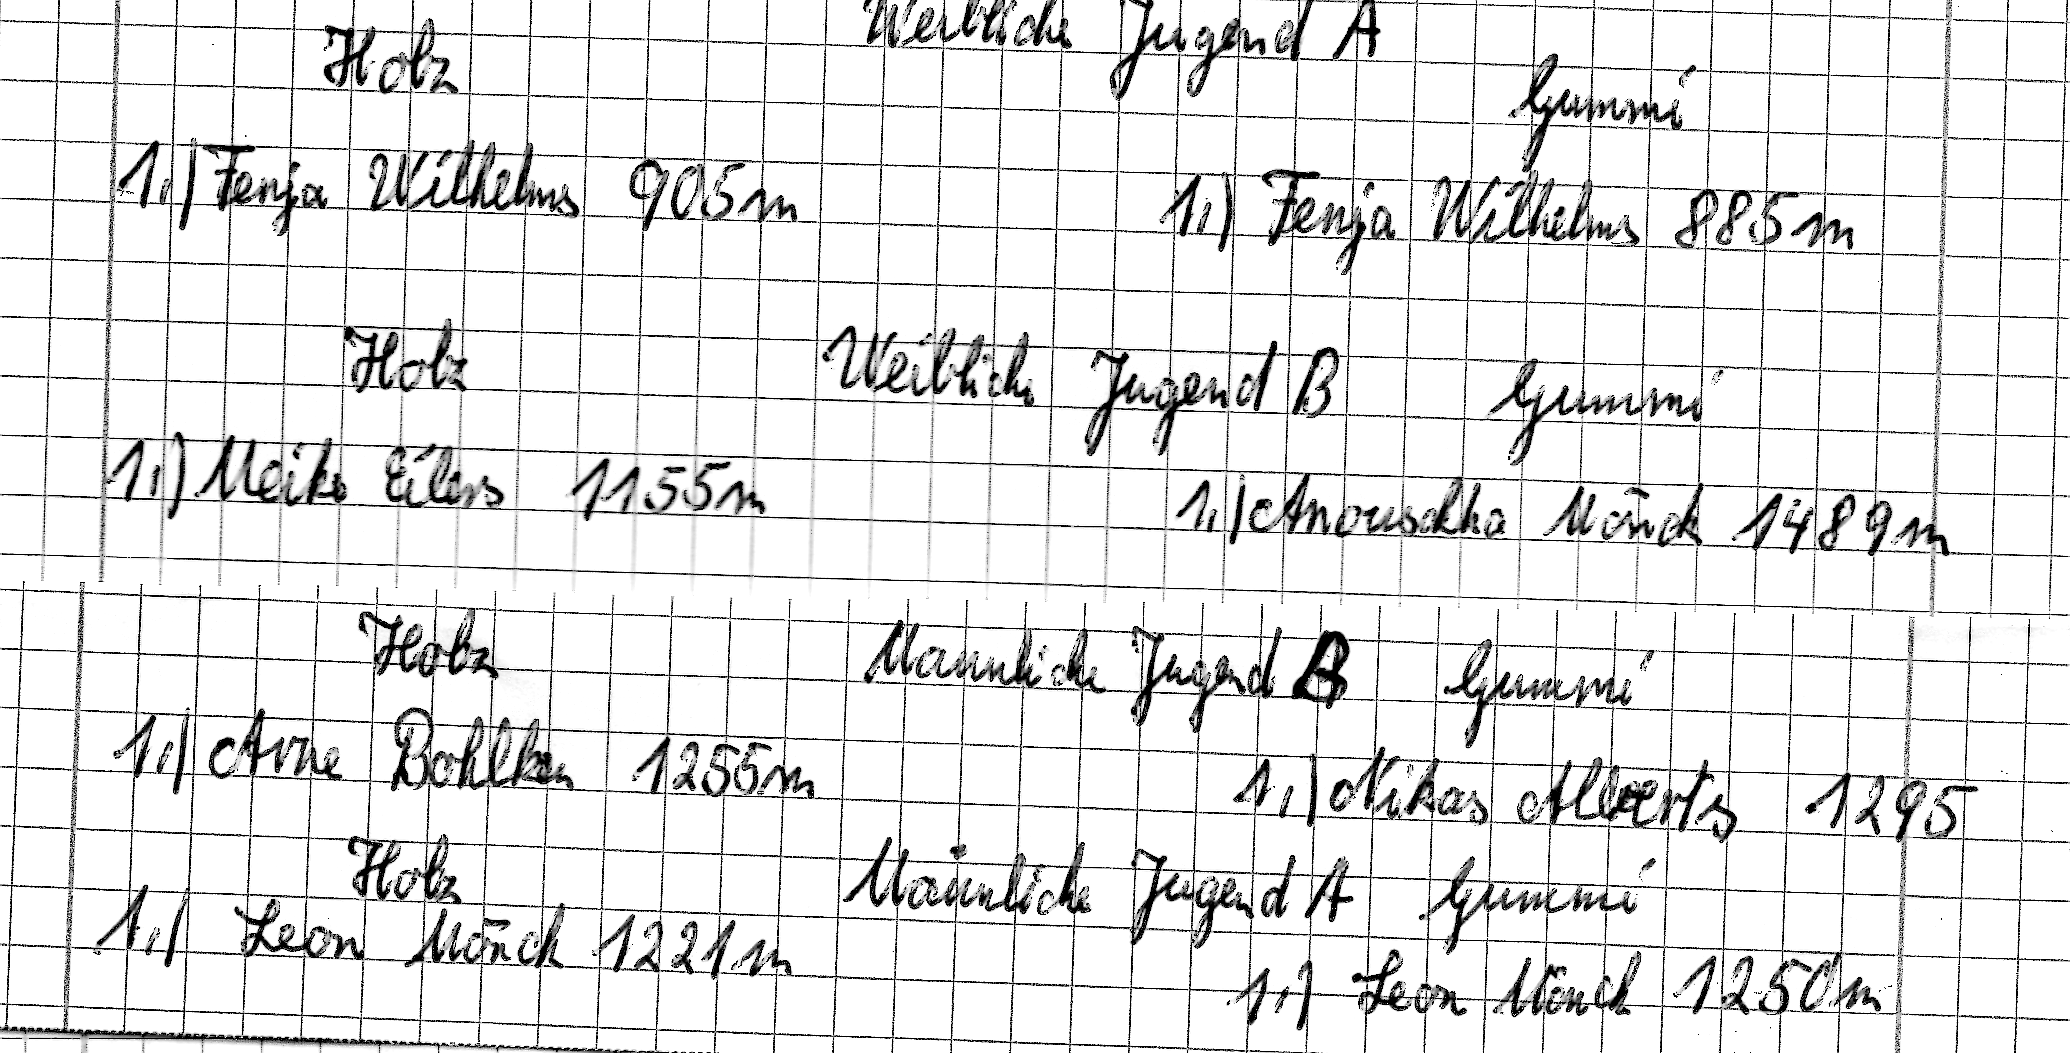 Holz Weibliche Jugend A Gummi
1.) Fenja Wilhelms 905m 1.) Fenja Wilhelms 885m
Holz Weibliche Jugend B Gummi
1.) Meike Eilers 1155m 1.) Anouschka Mönck 1489m
Holz Mannliche Jugend B Gummi
1.) Arne Bohlken 1255m 1.) Nikas Alberts 1295
Holz Männliche Jugend A Gummi
1.) Leon Mönck 1221m 1.) Leon Mönck 1250m